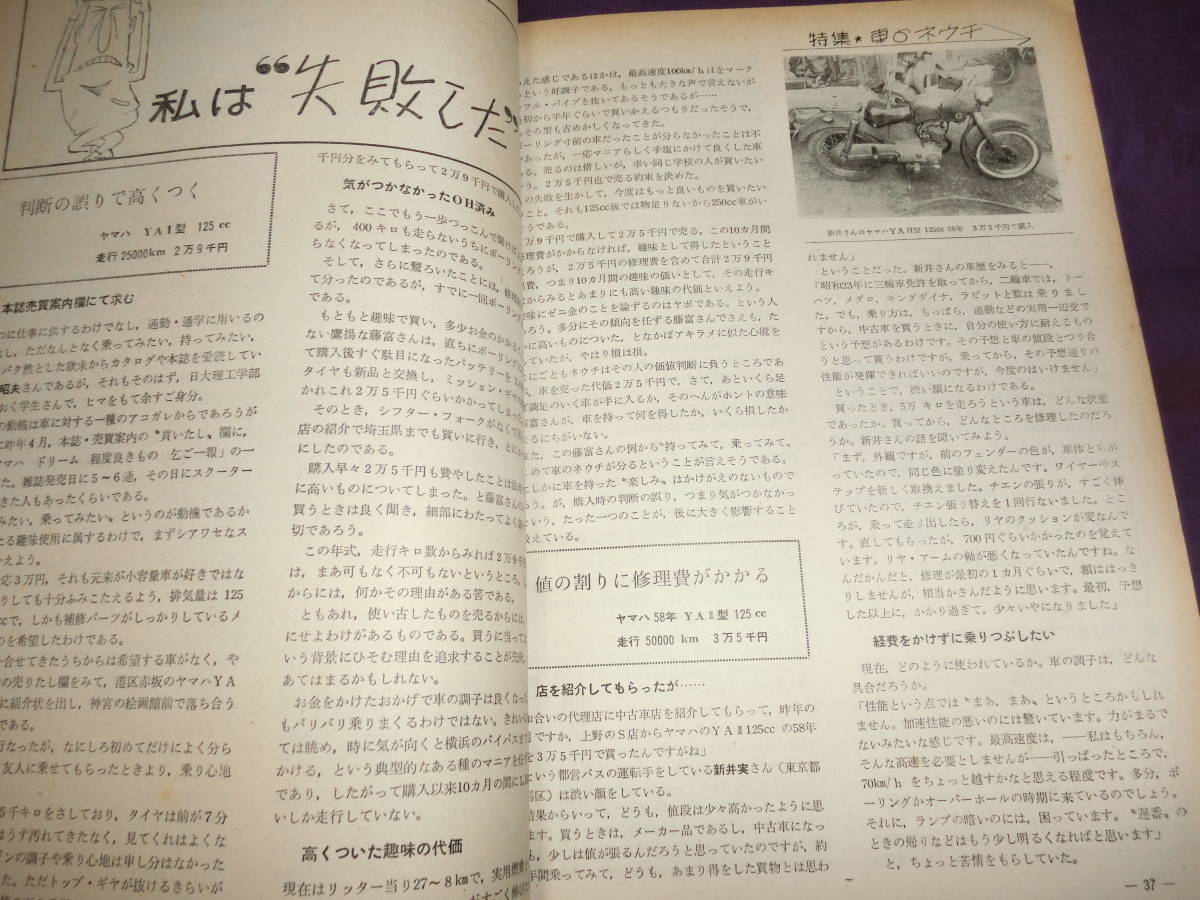 私は“失敗した”
判断の誤りで高くつく
ヤマハ YAⅠ型 125 cc
走行 25000km 2万9千円
本誌売買案内欄にて求む
つに仕事に供するわけでなし，通勤・通学に用いるの
なし，ただなんとなく乗ってみたい，持ってみたい，
バク然とした欲求からカタログや本誌を愛読してい
昭夫さんであるが，それもそのはず，日大理工学部
おく学生さんで，ヒマをもて余すご身分。
の動機は車に対する一種のアコガレからであろうが
に昨年4月，本誌・売買案内の〝買いたし〟欄に，
マハ ドリーム 程度良きもの 乞ご一報」の一
た。雑誌発売日に5～6通，その日にスクーター
きた人もあったくらいである。
みたい，乗ってみたい〟というのが動機であるか
たる趣味使用に属するわけで，まずシアワセなス
かえよう。
応3万円，それも元来が小容量車が好きではな
りしても十分ふみこたえるよう，排気量は 125
ccで，しかも補修パーツがしっかりしているメ
のを希望したわけである。
合せてきたうちからは希望する車がなく，や
の売りたし欄をみて，港区赤坂のヤマハYA
に紹介状を出し，神宮の絵画館前で落ち合う
である。
行なったが，なにしろ初めてだけによく分ら
友人に乗せてもらったときより，乗り心地
5千キロをさしており，タイヤは前が7分
はうす汚れてきたなく，見てくれはよくな
ンの調子や乗り心地は申し分はなかった
た。ただトップ・ギヤが抜けるきらいが
千円分をみてもらって2万9千円で購入し
気がつかなかったOH済み
さて，ここでもう一歩つっこんで聞けば
るが，400 キロも走らないうちにボーリン
らなくなってしまったのである。
そして，さらに驚ろいたことには，修理
て分ったのであるが，すでに一回ボーリン
である。
もともと趣味で買い，多少お金のかか
ない鷹揚な藤富さんは，直ちにボーリング
て購入後すぐ駄目になったバッテリーを
タイヤも新品と交換し，ミッション・ギヤ
かれこれ2万5千円ぐらいかかってしまった
そのとき，シフター・フォークがなくて
店の紹介で埼玉県までも買いに行き，とに
にしたのである。
購入早々2万5千円も費やしたことは
に高いものについてしまった。と藤富さん
買うときは良く聞き，細部にわたってよく
切であろう。
この年式，走行キロ数からみれば2万9千
は，まあ可もなく不可もないというところ，
からには，何かその理由がある筈である。
ともあれ，使い古したものを売るからには
にせよわけがあるものである。買うに当って
いう背景にひそむ理由を追求することが先決
あてはまるかもしれない。
お金をかけたおかげで車の調子は良くなった
もバリバリ乗りまくるわけではない。きれい
ては眺め，時に気が向くと横浜のバイパスまで
かける，という典型的なある種のマニアを任
であり，したがって購入以来10カ月の間に
いしか走行していない。
高くついた趣味の代価
現在はリッター当り27～8kmで，実用燃費
がすごく伸び
特集★車のネウチ
えた感じであるほかは，最高速度100km/hはをマーク
という好調子である。もっとも大きな声で言えないが
フル・パイプを抜いてあるそうであるが……
最初から半年ぐらいで買いかえるつもりだったそうで，
そろそろ型も古めかしくなってきた。
ボーリング寸前の車だったことが分らなかったことは不
であったが，一応マニアらしく手塩にかけて良くした車
る。売るのは惜しいが，幸い同じ学校の人が買いたい
う。2万5千円也で売る約束を決めた。
の失敗を生かして，今度はもっと良いものを買いたい
こと。それも125cc級では物足りないから250cc車がい
うである。
万9千円で購入して2万5千円で売る。この10カ月間
修理費がかからなければ，趣味として得したということ
たろうが，2万5千円の修理費を含めて合計2万9千円
費，つまり10カ月間の趣味の価いとして，その走行キ
からみるとあまりにも高い趣味の代価といえよう。
味にゼニ金のことを論ずるのはヤボである。という人
ろう。多分にその傾向を任ずる藤富さんでさえも，た
に高いものについた，となかばアキラメに似た心境を
ていたが，やはり損は損。
にごともネウチはその人の価値判断に負うところであ
，車を売った代価2万5千円で，さて，あといくら足
ば満足のいく車が手に入るか，そのへんがホントの意味
藤富さんが，車を持って何を得したか，いくら損したか
まるにちがいない。
，この藤富さんの例から〝持ってみて，乗ってみて。
じめて車のネウチが分るということが言えそうである。
たしかに車を持った〝楽しみ〟はかけがえのないもので
う。が，購入時の判断の誤り，つまり気がつかなかっ
いう，たった一つのことが，後に大きく影響すること
教えている。
値の割りに修理費がかかる
ヤマハ 58年 YAⅡ型 125 cc
走行 50000 km 3万5千円
店を紹介してもらったが……
合いの代理店に中古車店を紹介してもらって，昨年の
ですか，上野のS店からヤマハのYAⅡ125ccの58年
を3万5千円で買ったんですがね」
という都営バスの運転手をしている新井実さん（東京都
区）は渋い顔をしている。
結果からいって，どうも，値段は少々高かったように思
ます。買うときは，メーカー品であるし，中古車になっ
も，少しは値が張るんだろうと思っていたのですが，約
年間乗ってみて，どうも，あまり得をした買物とは思わ
新井さんのヤマハYAⅡ型 125cc 58年 3万5千円で購入
れません」
ということだった。新井さんの車歴をみると――，
「昭和23年に三輪車免許を取ってから，二輪車では，トー
ハツ，メグロ，キングダイナ，ラビットと数は乗りまし
た。でも，乗り方は，もっぱら，通勤などの実用一辺党で
すから，中古車を買うときに，自分の使い方に耐えるもの
という予想があるわけです。その予想と車の値段とつり合
うと思って買うわけですが，乗ってから，その予想通りの
性能が発揮できればいいのですが，今度のはいけません」
ということで，渋い顔になるわけである。
買ったとき，5万 キロを走ろうという車は，どんな状態
であったか。買ってから，どんなところを修理したのだろ
うか。新井さんの話を聞いてみよう。
「まず，外観ですが，前のフェンダーの色が，車体とちが
っていたので，同じ色に塗り変えたんです。ワイヤーやス
テップを新しく取換えました。チエンの張りが，すごく伸
びていたので，チエン張り替えを1回行ないました。とこ
ろが，乗って走り出したら，リヤのクッションが変なんで
す。直してもらったが，700円ぐらいかかったのを覚えて
います。リヤ・アームの軸が悪くなっていたんですね。な
んだかんだと，修理が最初の1カ月ぐらいで，額ははっき
りしませんが，相当かさんだように思います。最初，予想
した以上に，かかり過ぎて，少々いやになりました」
経費をかけずに乗りつぶしたい
現在，どのように使われているか。車の調子は，どんな
具合だろうか。
「性能という点では〝まあ，まあ〟というところかもしれ
ません。加速性能の悪いのには驚いています。力がまるで
ないみたいな感じです。最高速度は，――私はもちろん，
そんな高速を必要としませんが――引っぱったところで，
70km/h をちょっと越すかなと思える程度です。多分，ボ
ーリングかオーバーホールの時期に来ているのでしょう。
それに，ランプの暗いのには，困っています。〝遅番〟の
ときの帰りなどはもう少し明るくなればと思います」
と，ちょっと苦情をもらしていた。
― 37 ―